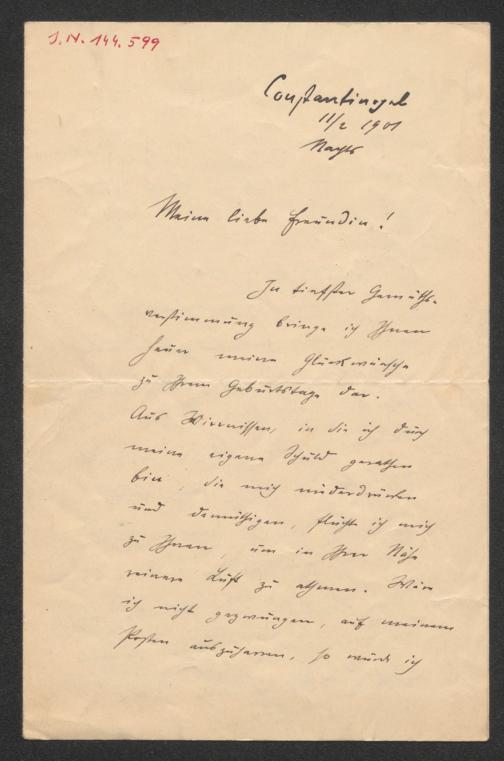 J.N. 144.599
Constantinopel
11/2 1901
Nachts
Meine liebe Freundin!
In tiefster Gemüths-
verstimmung bringe ich Ihnen
heuer meine Glückwünsche
zu Ihrem Geburtstage dar.
Aus Wirrnissen, in die ich durch
meine eigene Schuld gerathen
bin, die mich niederdrücken
und demüthigen, flüchte ich mich
zu Ihnen, um in Ihrer Nähe
reinere Luft zu athmen. Wäre
ich nicht gezwungen, auf meinem
Posten auszuharren, so würde ich